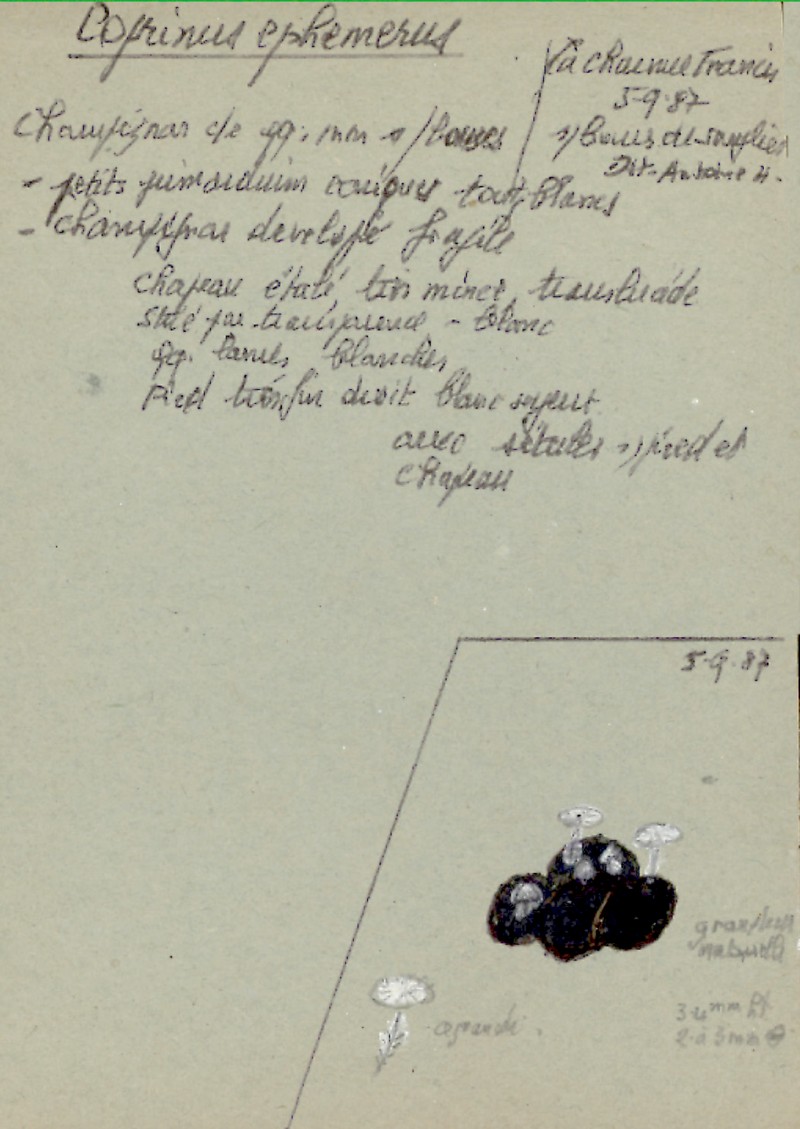 Coprinus ephemerus
La chaumee Francis
5-9-87
s/ bouses de sanglier
Dét. Antoine H.
Champignon de qq. mm s/ bouses
- petits primordium coniques tout blancs
- champignon developé fragile
chapeau étalé, très mince, translucide
strié par transparence - blanc
qq. lames blanches
Pied très fin droit blanc soyeux
avec sétules s/ pied et
chapeau
5-9-87
grandeur
naturelle
agrandi.
3-4 mm ht
2 à 3 mm